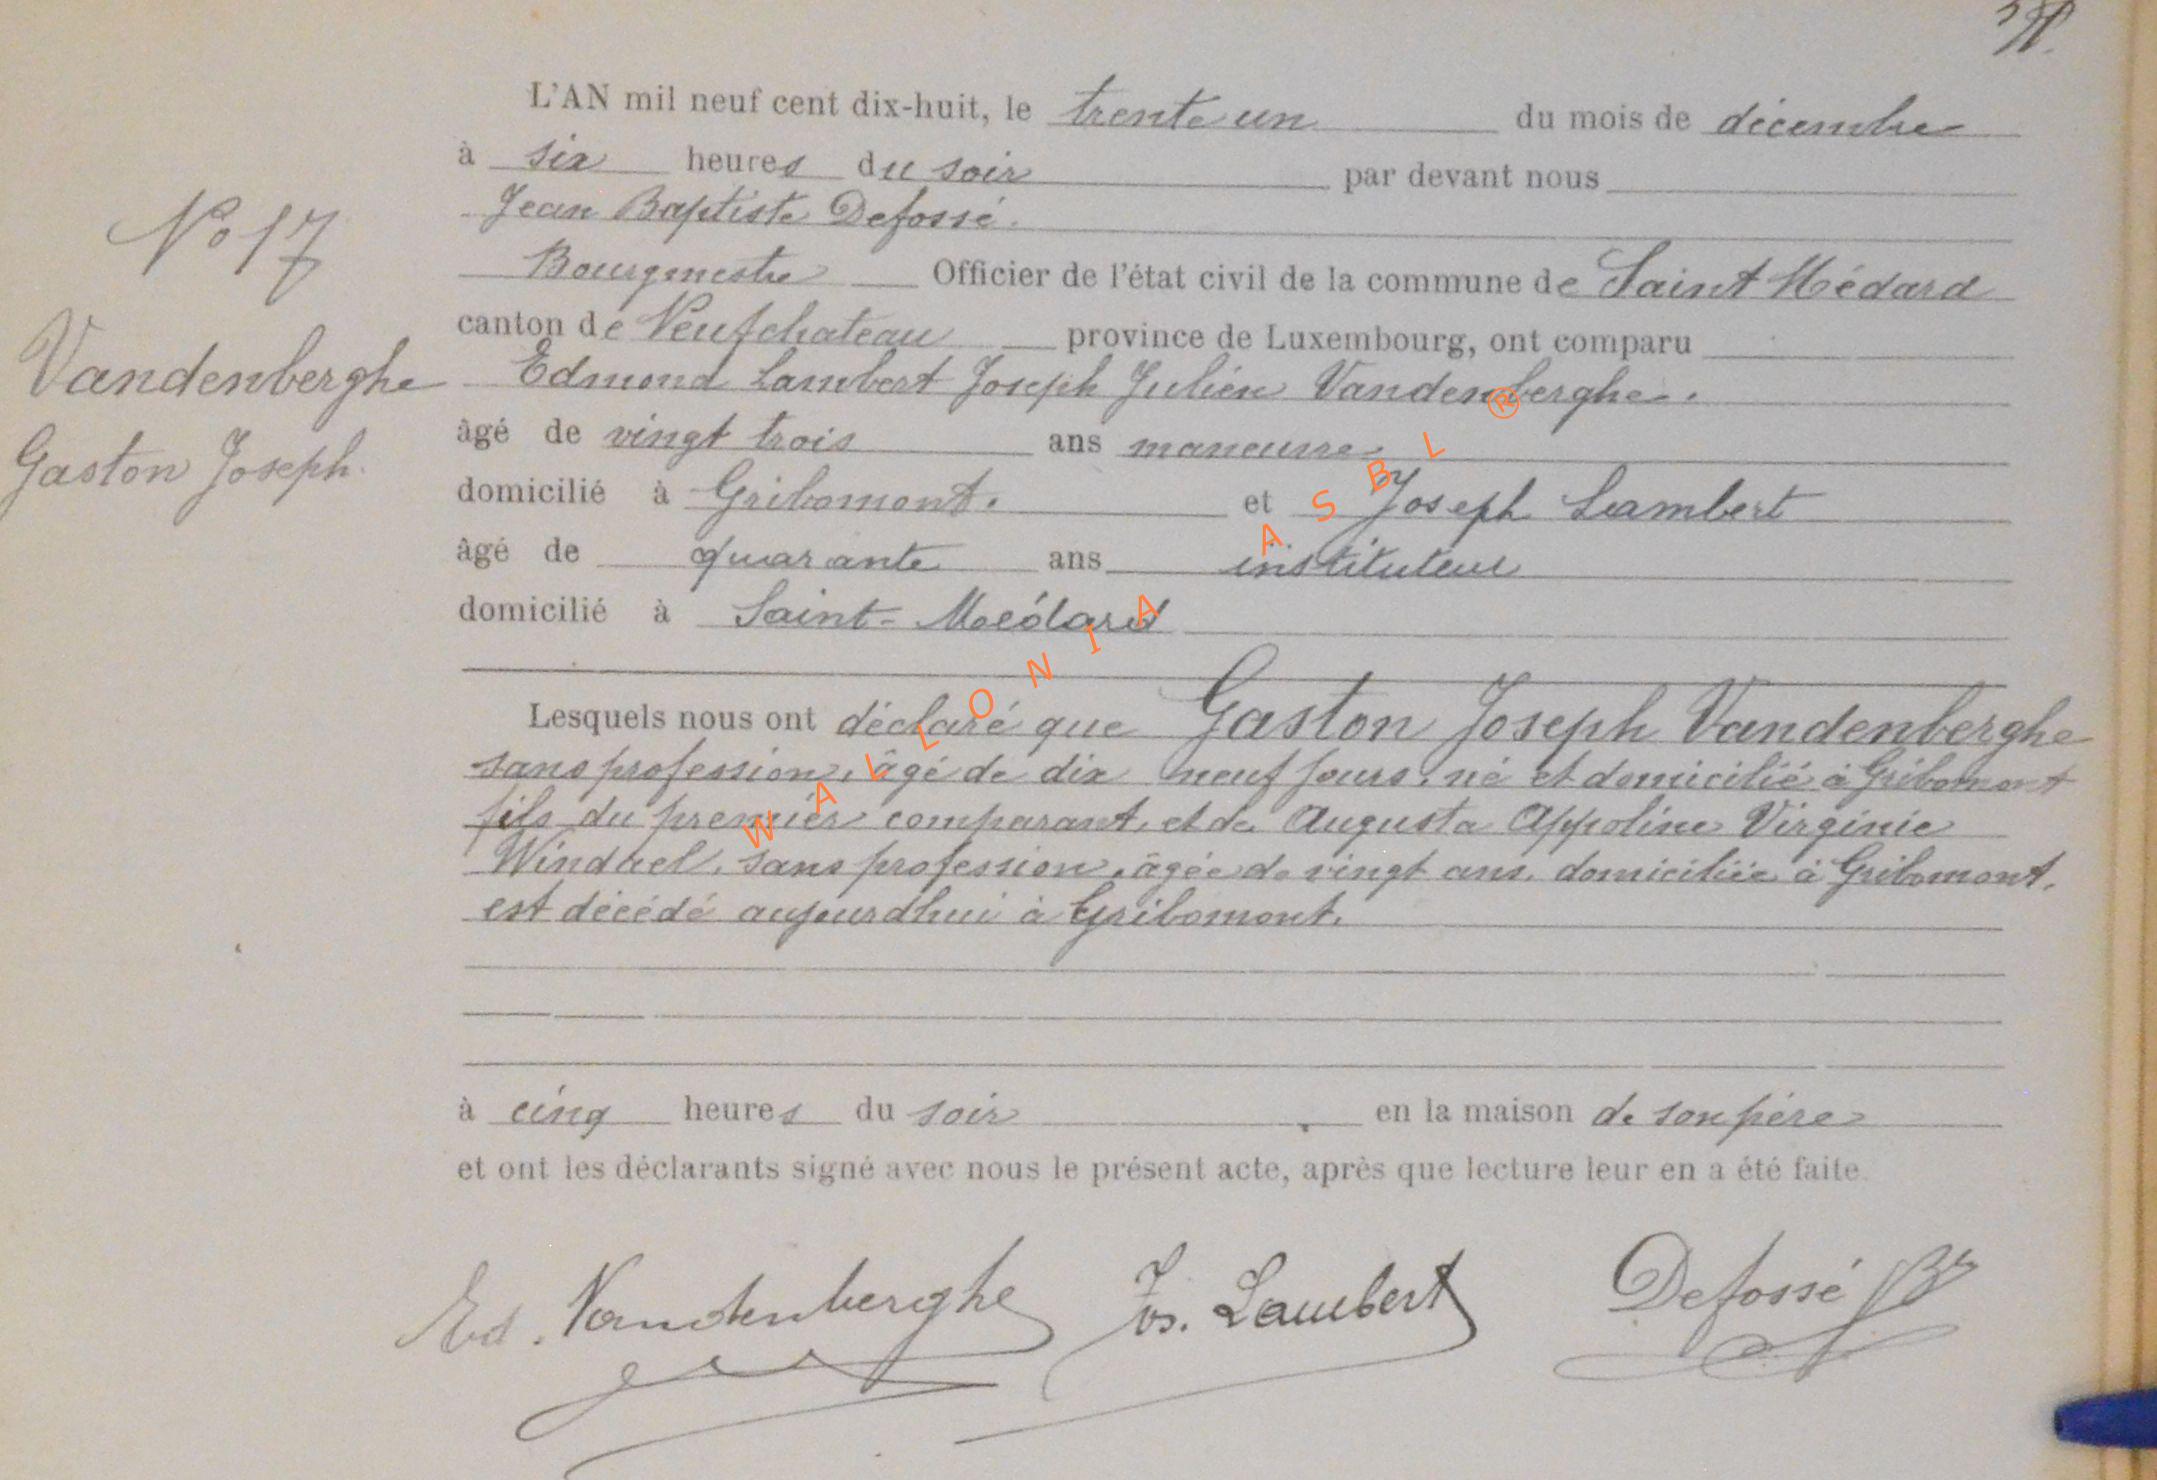 L'AN mil neuf cent dix-huit, le trente un du mois de décembre
à six heures du soir par devant nous
Jean Baptiste Defossé.
Bourgmestre Officier de l'état civil de la commune de Saint Médard
canton de Neufchateau province de Luxembourg, ont comparu
Edmond Lambert Joseph Julien Vandenberghe.
âgé de vingt trois ans maneuvre
domicilié à Gribomont. et Joseph Lambert
âgé de quarante ans instituteur
domicilié à Saint-Médard
Lesquels nous ont déclaré que Gaston Joseph Vandenberghe
sans profession, âgé de dix neuf jours, né et domicilié à Gribomont
fils du premier comparant, et de Augusta Appoline Virginie
Windael, sans profession, âgée de vingt ans, domiciliée à Gribomont,
est décédé aujourdhui à Gribomont.
à cinq heures du soir en la maison de son père
et ont les déclarants signé avec nous le présent acte, après que lecture leur en a été faite.
Ed. Vandenberghe Jos. Lambert Defossé
No 17
Vandenberghe
Gaston Joseph.
WALLONIA ASBL ®